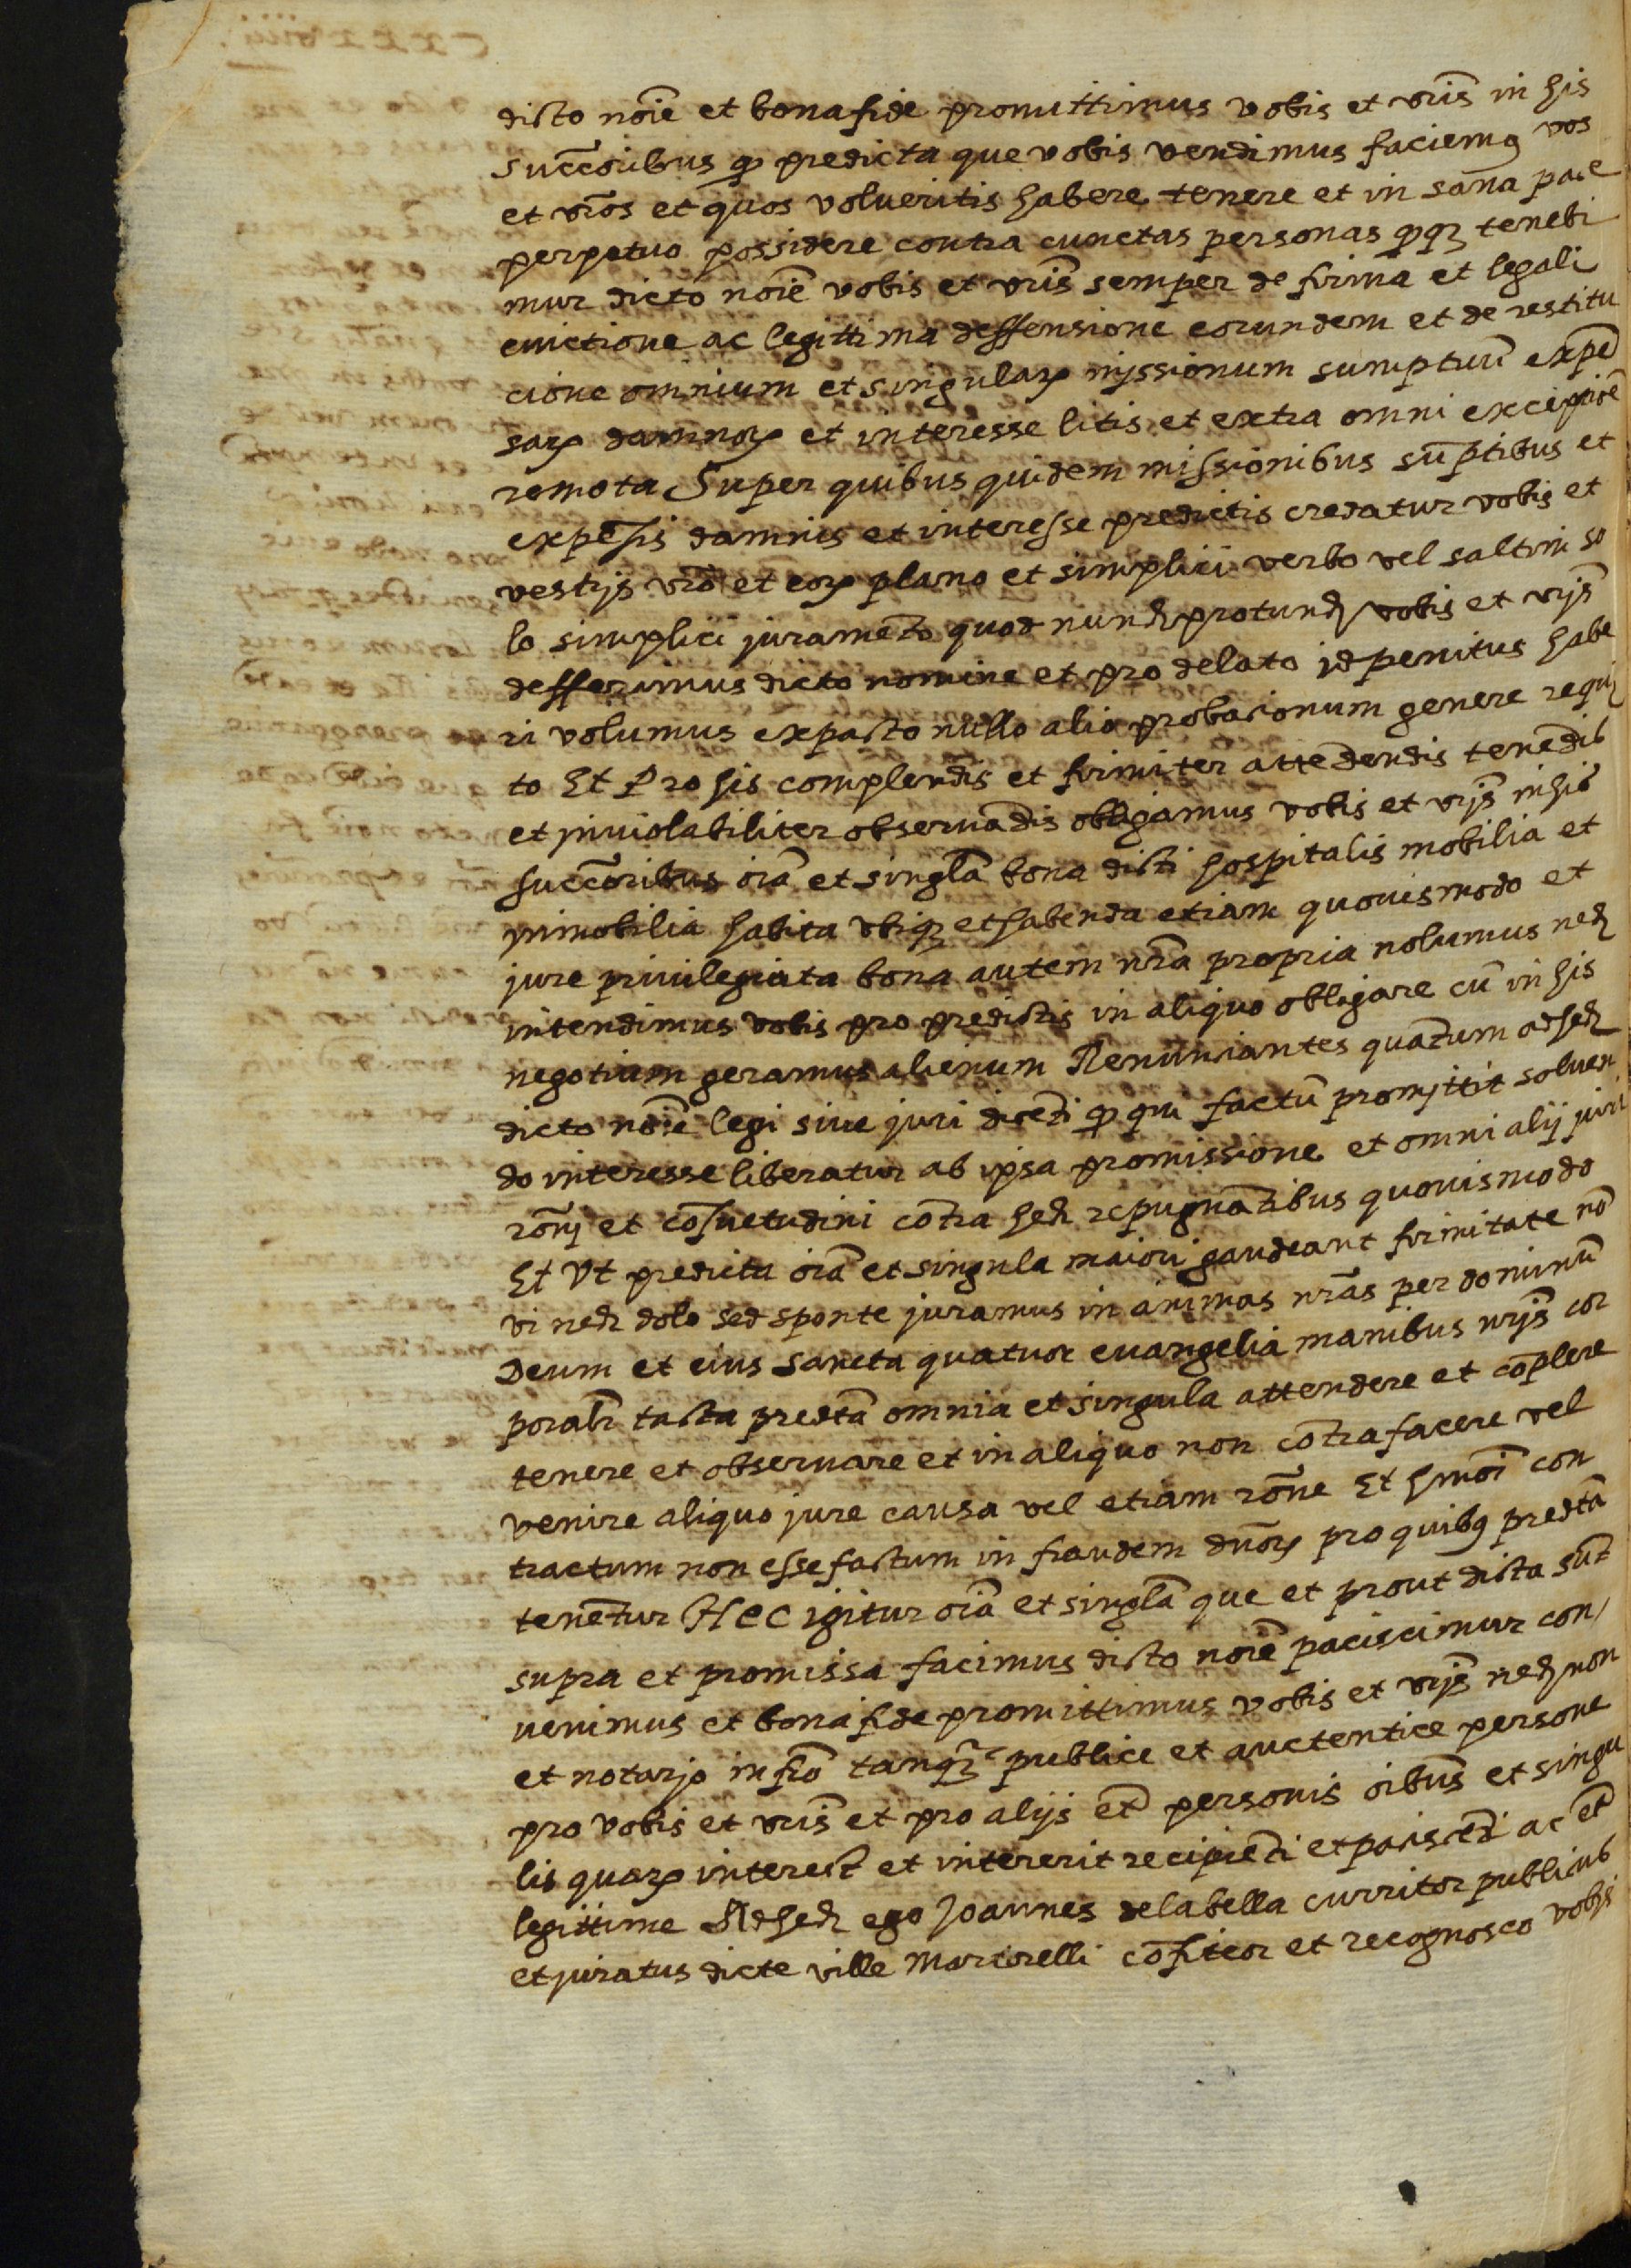 dicto noīe et bona fide promittimus vobis et vr̄is in his
succ̄oribus q̨ predicta que vobis vendimus faciemꝯ vos
et vr̄os et quos volueritis habere tenere et in sana pace
perpetuo possidere contra cunctas personas q̨qꝫ tenebi
mur dicto noīe vobis et vr̄is semper de firma et legali
euictione ac legittima deffensione eorundem et de restitu
cione omnium et singulaꝝ missionum sumptuū expē
saꝝ damnoꝝ et interesse litis et extra omni excepciōe
remota Super quibus quidem missionibus sūptibus et
expēsis damnis et interesse predictis credatur vobis et
vestris vr̄o et eoꝝ plano et simplici verbo vel saltim so
lo simplici juramēto quod nunꝫ protunꝫ vobis et vrjs̄
defferimus dicto nomine et pro delato jd penitus habe
ri volumus expacto nullo alio probacionum genere requi
to Et Pro his complendis et firmiter attēdendis tenēdis
et inuiolabiliter obseruādis obligamus vobis et vrjs̄ inhis
succ̄oribus oīa et singl̄a bona dicti hospitalis mobilia et
jmmobilia habita vbiqꝫ et habenda etiam quouismodo et
jure priuilegiata bona autem nr̄a propria nolumus neqꝫ
intendimus vobis pro predictis in aliquo obligare cū in his
negotium geramus alienum Renunciantes quātum ad heꝫ
dicto noīe legi siue juri dicēti q̨ qui factū promittit soluen
do interesse liberatur ab ipsa promissione et omni alij juri
rōnj et cōsuetudini cōtra heꝫ repugnātibus quouismodo
Et Vt predicta oīa et singula maiori gaudeant firmitate nō
vi neqꝫ dolo sed sponte juramus in animas nr̄as per dominū
Deum et eius sancta quatuor euangelia manibus nrjs̄ cor
poralr̄ tacta predc̄ta omnia et singula attendere et cōplere
tenere et obseruare et in aliquo non cōtrafacere vel
venire aliquo jure causa vel etiam rōne Et hmōi con
tractum non esse factum in fraudem dn̄oꝝ pro quibꝯ predc̄ta
tenētur Hec igitur oīa et singl̄a que et prout dicta sūt
supra et promissa facimus dicto noīe paciscimur con/
uenimus et bona fide promittimus vobis et vrjs̄ neqꝫ non
et notarjo infr̄o tanqꝫ publice et auctentice persone
pro vobis et vr̄is et pro alijs et̄ personis oībus et singu
lis quaꝝ interest et intererit recipiēti et paciscēti ac et̄
legittime Ad heꝫ ego Joannes delabella curritor publicus
et juratus dicte ville Martorelli cōfiteor et recognosco vobjs